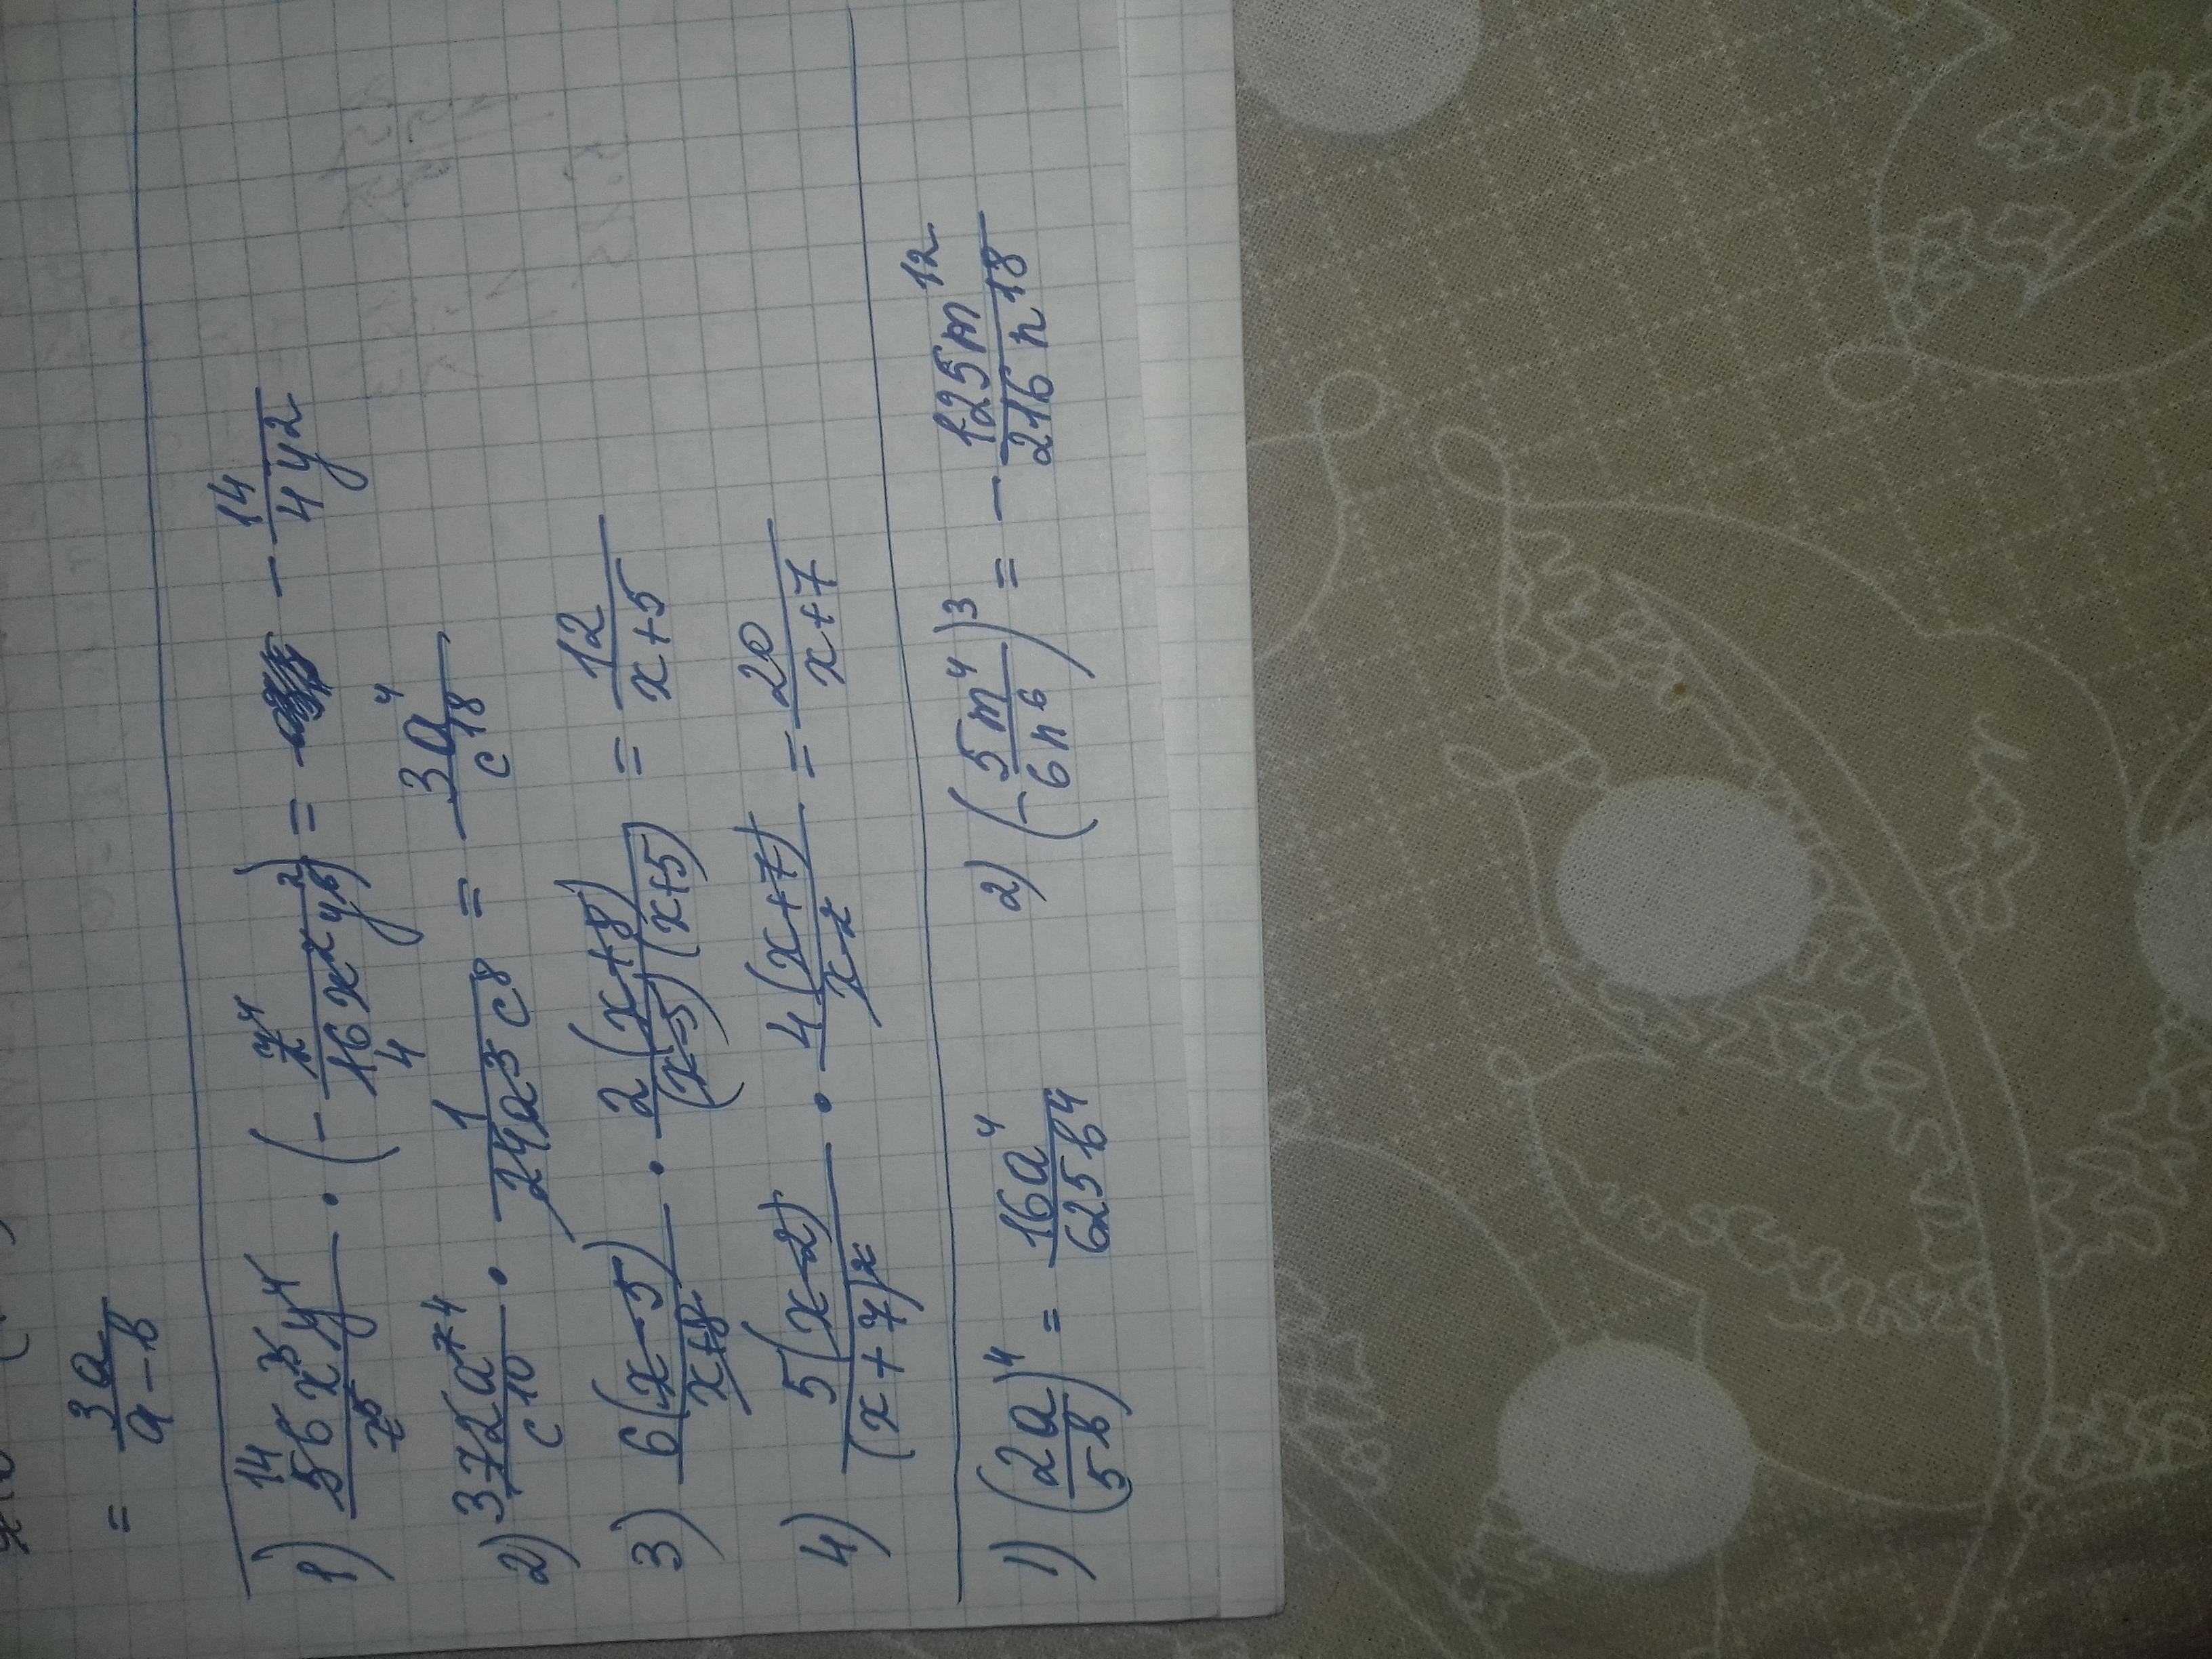 = 3a / a − b
1) 14 56 x³ y⁴ / z⁵ · (− z⁴ / 16 x² y⁶ ² 4) = − 14 / 4y²
2) 3 72 a⁷ ⁴ / c¹⁰ · 1 / 24 a³ c⁸ = 3a⁴ / c¹⁸
3) 6(x − 5) / x+8 · 2(x+8) / (x−5)(x+5) = 12 / x+5
4) 5(x−2) / (x+7)² · 4(x+7) / x−2 = 20 / x+7
1) (2a / 5b)⁴ = 16a⁴ / 625b⁴ 2) (− 5m⁴ / 6n⁶)³ = − 125m¹² / 216n¹⁸